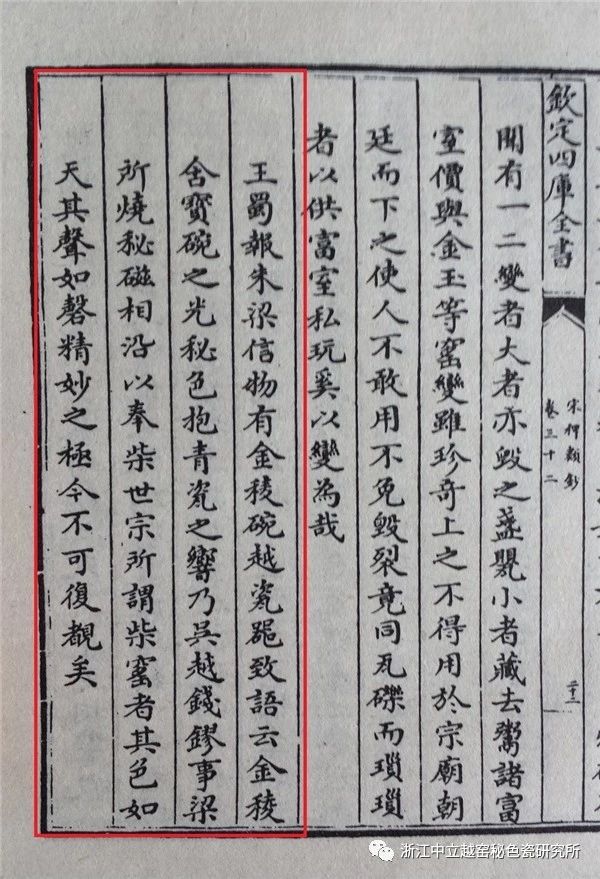 欽定四庫全書
宋稗類鈔
卷三十二
二十二
閒有一二變者大者亦毀之盞甖小者藏去鬻諸富
室價與金玉等窰變雖珍奇上之不得用於宗廟朝
廷而下之使人不敢用不免毀裂竟同瓦礫而瑣瑣
者以供富室私玩奚以變為哉
王蜀報朱梁信物有金稜碗越瓷器致語云金稜
含寶碗之光秘色抱青瓷之響乃吳越錢鏐事梁
所燒秘磁相沿以奉柴世宗所謂柴窰者其色如
天其聲如磬精妙之極今不可復覩矣
浙江中立越窑秘色瓷研究所